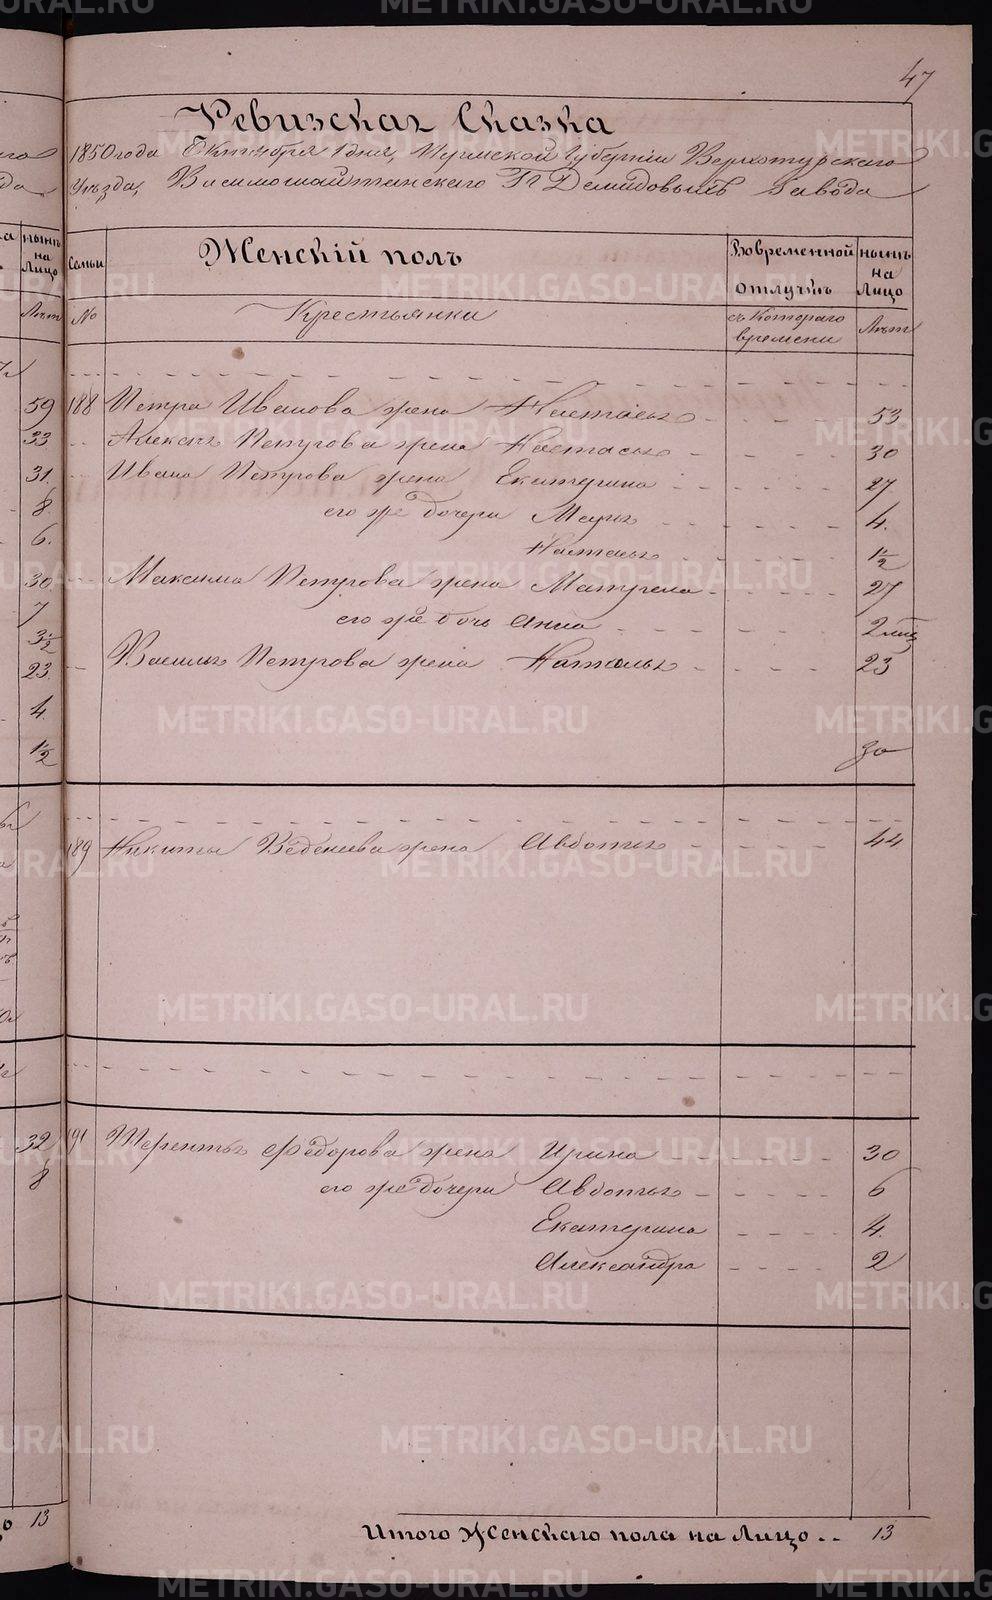 47
Ревизская Сказка
1850 года Октября 1 дня, Пермской Губернии Верхотурского
Уѣзда, Висимошайтанскаго Гг Демидовыхъ Завода
Семьи
Женскій полъ
Во временной отлучкѣ
нынѣ на Лицо
№
Крестьянки
съ котораго времени
Лѣт
188 Петра Иванова жена Настасья 53
Алексѣя Петрова жена Настасья 30
Ивана Петрова жена Екатерина 27
его же дочери Марья 4.
Настасья 1½
Максима Петрова жена Матрена 27
его же дочь Анна 2 мѣц
Василья Петрова жена Наталья 23
189 Никиты Веденеева жена Авдотья 44
191 Терентья Федорова жена Ирина 30
его же дочери Авдотья 6
Екатерина 4.
Александра 2
Итого Женскаго пола на Лицо .. 13
нынѣ на Лицо
Лѣт
59
33
31.
8
6.
30
7
3½
23
4.
1½
32
8
13
METRIKI.GASO-URAL.RU